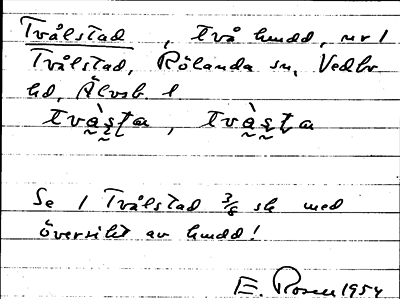 Tvålstad, två hmdd, nr 1
Tvålstad, Rölanda sn, Vedbo
hd, Älvsb. l
tvàs̨t̨a, tvàs̨t̨a
Se 1 Tvålstad 3/8 sk med
översikt av hmdd!
E. Rosen 1954